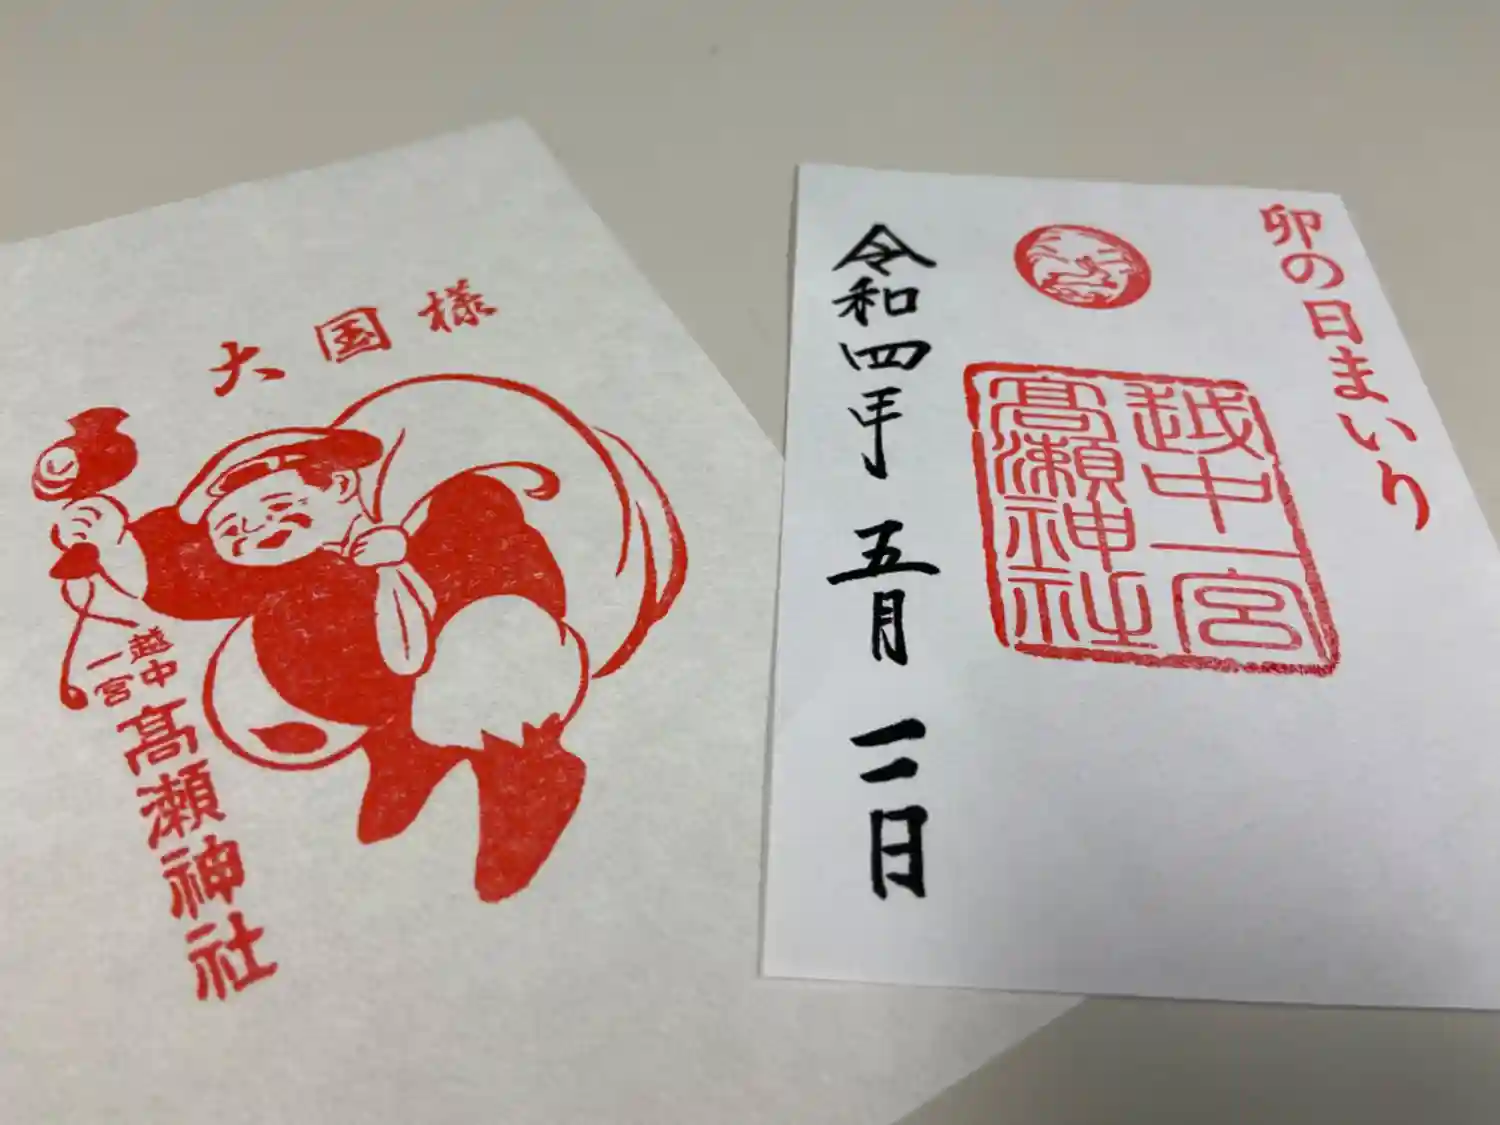 大国様
越中
一宮
髙瀬神社
卯の日まいり
越中一宮
髙瀬神社
令和四年 五月 二日